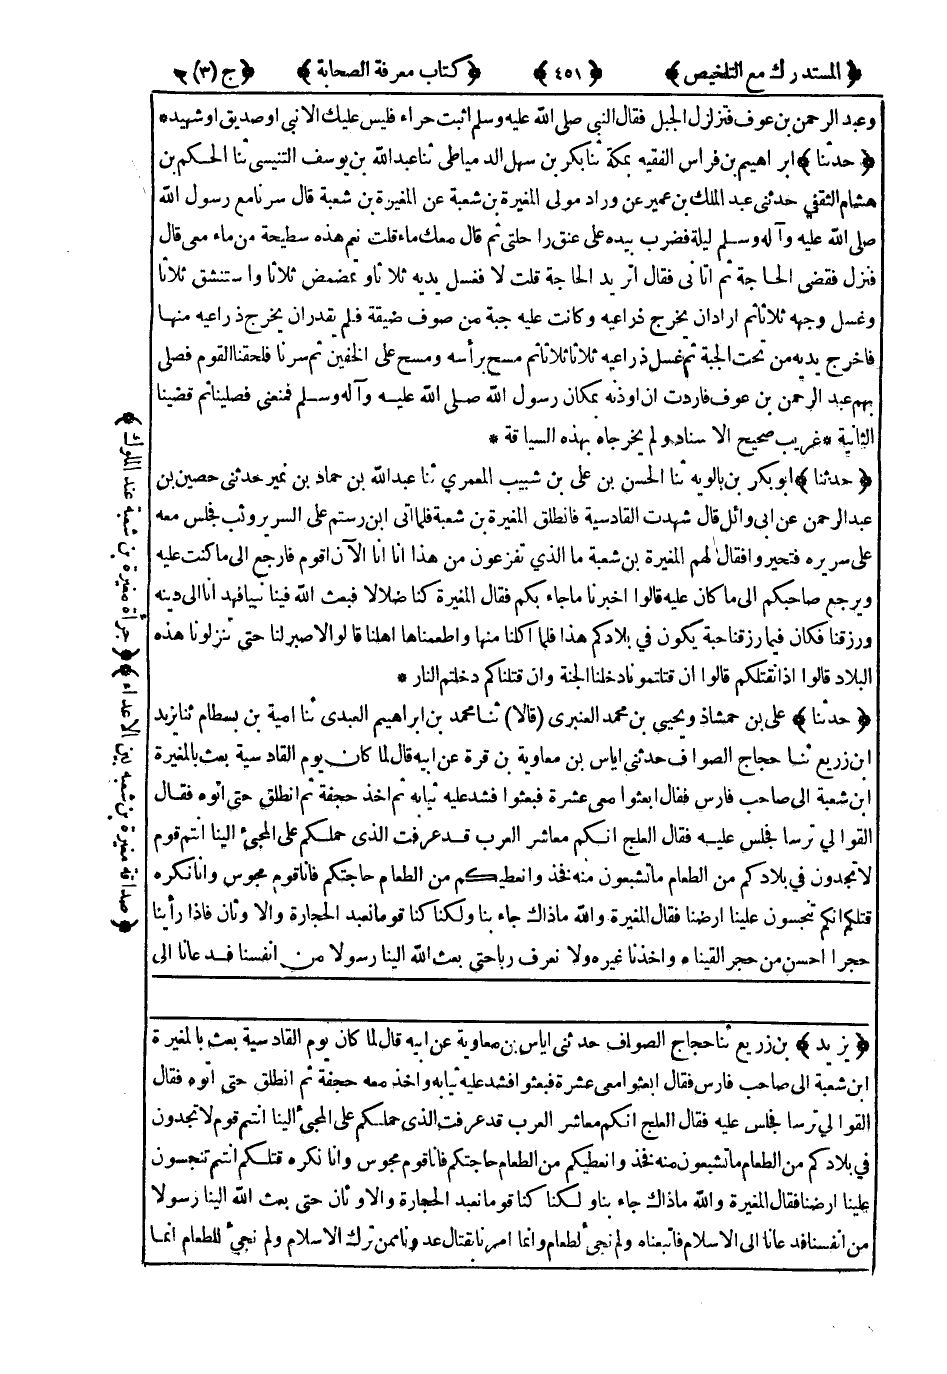 ﴿ المستدرك مع التلخيص ﴾ ﴿ ٤٥١ ﴾ ﴿ كتاب معرفة الصحابة ﴾ ﴿ ج (٣) ﴾
وعبد الرحمن بن عوف فتزلزل الجبل فقال النبي صلى الله عليه وسلم اثبت حراء فليس عليك الا نبى او صديق او شهيد *
﴿ حدثنا ﴾ ابراهيم بن فراس الفقيه بمكة ثنا بكر بن سهل الدمياطى ثنا عبد الله بن يوسف التنيسى ثنا الحكم بن
هشام الثقفى حدثنى عبد الملك بن عمير عن وراد مولى المغيرة بن شعبة عن المغيرة بن شعبة قال سرنا مع رسول الله
صلى الله عليه وآله وسلم ليلة فضرب بيده على عنق راحلتى ثم قال معك ماء قلت نعم هذه سطيحة من ماء معى قال
فنزل فقضى الحاجة ثم اتانى فقال اتريد الحاجة قلت لا فغسل يديه ثلاثا وتمضمض ثلاثا واستنشق ثلاثا
وغسل وجهه ثلاثا ثم اراد ان يخرج ذراعيه وكانت عليه جبة من صوف ضيقة فلم يقدر ان يخرج ذراعيه منها
فاخرج يديه من تحت الجبة ثم غسل ذراعيه ثلاثا ثلاثا ثم مسح برأسه ومسح على الخفين ثم سرنا فلحقنا القوم فصلى
بهم عبد الرحمن بن عوف فاردت ان اوذنه بمكان رسول الله صلى الله عليه وآله وسلم فمنعنى فصلينا ثم قضينا
الثانية * غريب صحيح الاسناد ولم يخرجاه بهذه السياقة *
﴿ حدثنا ﴾ ابو بكر بن بالويه ثنا الحسن بن على بن شبيب المعمري ثنا عبد الله بن حماد بن نمير حدثنى حصين بن
عبد الرحمن عن ابى وائل قال شهدت القادسية فانطلق المغيرة بن شعبة فلما اتى ابن رستم على السرير وثب فجلس معه
على سريره فتحيروا فقال لهم المغيرة بن شعبة ما الذي تفزعون من هذا انا انا الآن اقوم فارجع الى ما كنت عليه
ويرجع صاحبكم الى ما كان عليه قالوا اخبرنا ما جاء بكم فقال المغيرة كنا ضلالا فبعث الله فينا نبيا فهدانا الى دينه
ورزقنا فكان فيما رزقنا حبة يكون في بلادكم هذا فلما اكلنا منها واطعمناها اهلنا قالوا لا صبر لنا حتى تنزلونا هذه
البلاد قالوا اذا نقتلكم قالوا ان قتلتمونا دخلنا الجنة وان قتلناكم دخلتم النار *
﴿ حدثنا ﴾ على بن حمشاذ ويحيى بن محمد العنبرى (قالا) ثنا محمد بن ابراهيم العبدى ثنا امية بن بسطام ثنا يزيد
ابن زريع ثنا حجاج الصواف حدثنى اياس بن معاوية بن قرة عن ابيه قال لما كان يوم القادسية بعث بالمغيرة
ابن شعبة الى صاحب فارس فقال ابعثوا معى عشرة فبعثوا فشد عليه ثيابه ثم اخذ حجفة ثم انطلق حتى اتوه فقال
القوا لي ترسا فجلس عليه فقال العلج انكم معاشر العرب قد عرفت الذى حملكم على المجئ الينا انتم قوم
لا تجدون في بلادكم من الطعام ما تشبعون منه فخذ وانعطيكم من الطعام حاجتكم فانا قوم مجوس وانا نكره
قتلكم انكم تنجسون علينا ارضنا فقال المغيرة والله ما ذاك جاء بنا ولكنا كنا قوما نعبد الحجارة والاوثان فاذا رأينا
حجرا احسن من حجر القيناه واخذنا غيره ولا نعرف ربا حتى بعث الله الينا رسولا من انفسنا فدعانا الى
﴿ يزيد ﴾ بن زريع ثنا حجاج الصواف حدثنى اياس بن معاوية عن ابيه قال لما كان يوم القادسية بعث بالمغيرة
ابن شعبة الى صاحب فارس فقال ابعثوا معى عشرة فبعثوا فشد عليه ثيابه واخذ معه حجفة ثم انطلق حتى اتوه فقال
القوا لي ترسا فجلس عليه فقال العلج انكم معاشر العرب قد عرفت الذى حملكم على المجئ الينا انتم قوم لا تجدون
في بلادكم من الطعام ما تشبعون منه فخذ وانعطيكم من الطعام حاجتكم فانا قوم مجوس وانا نكره قتلكم انتم تنجسون
علينا ارضنا فقال المغيرة والله ما ذاك جاء بنا ولكنا كنا قوما نعبد الحجارة والاوثان حتى بعث الله الينا رسولا
من انفسنا فدعانا الى الاسلام فاتبعناه ولم نجئ لطعام وانما امرنا بقتال عدونا ممن ترك الاسلام ولم نجئ للطعام انما
﴿ جرأة مغيرة بن شعبة عند الملوك ﴾
﴿ صداقة مغيرة بن شعبه بين الاعداء ﴾